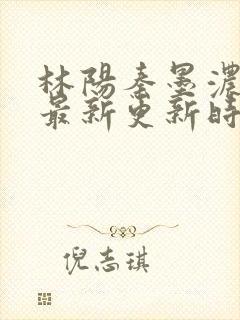 林陽秦墨濃
最新更新時
倪志琪